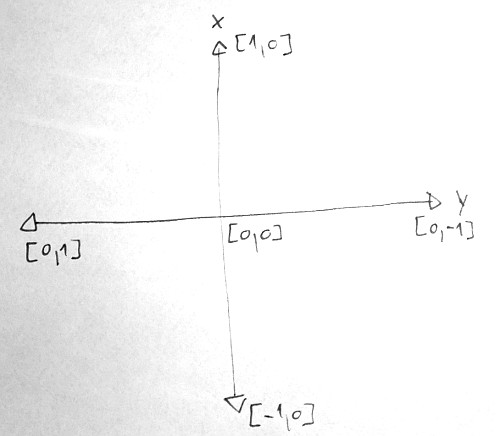 x
[1,0]
y
[0,-1]
[0,0]
[0,1]
[-1,0]